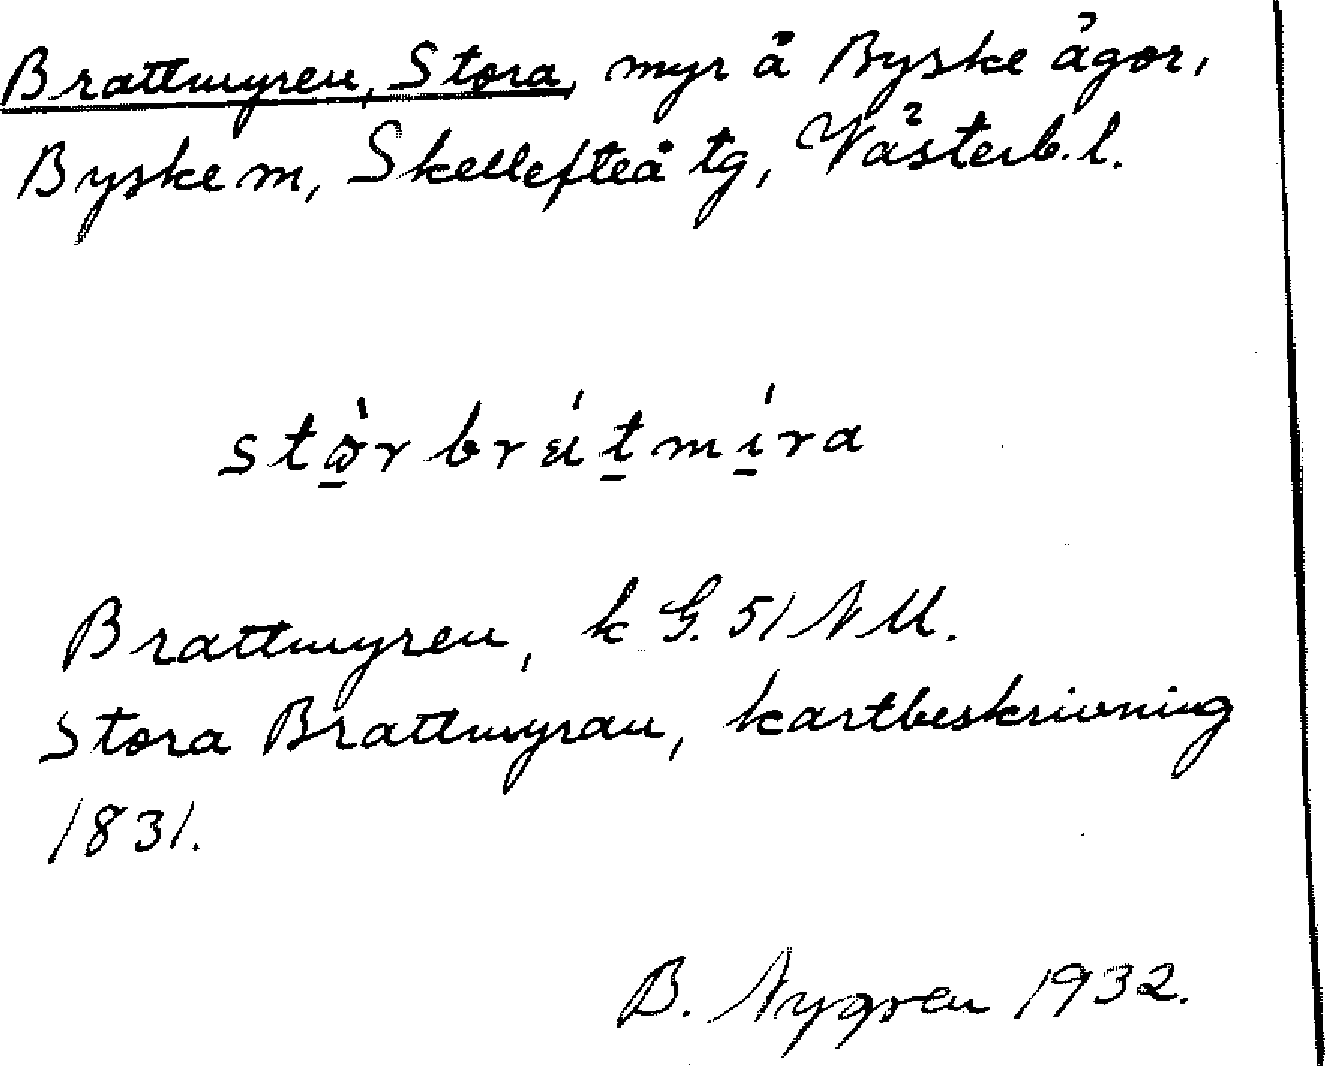 Brattmyren, Stora, myr å Byske ägor,
Byske sn, Skellefteå tg, Västerb. l.
Brattmyren, k G. 51 N U.
Stora Brattmyran, kartbeskrivning
1831.
B. Nygren 1932.